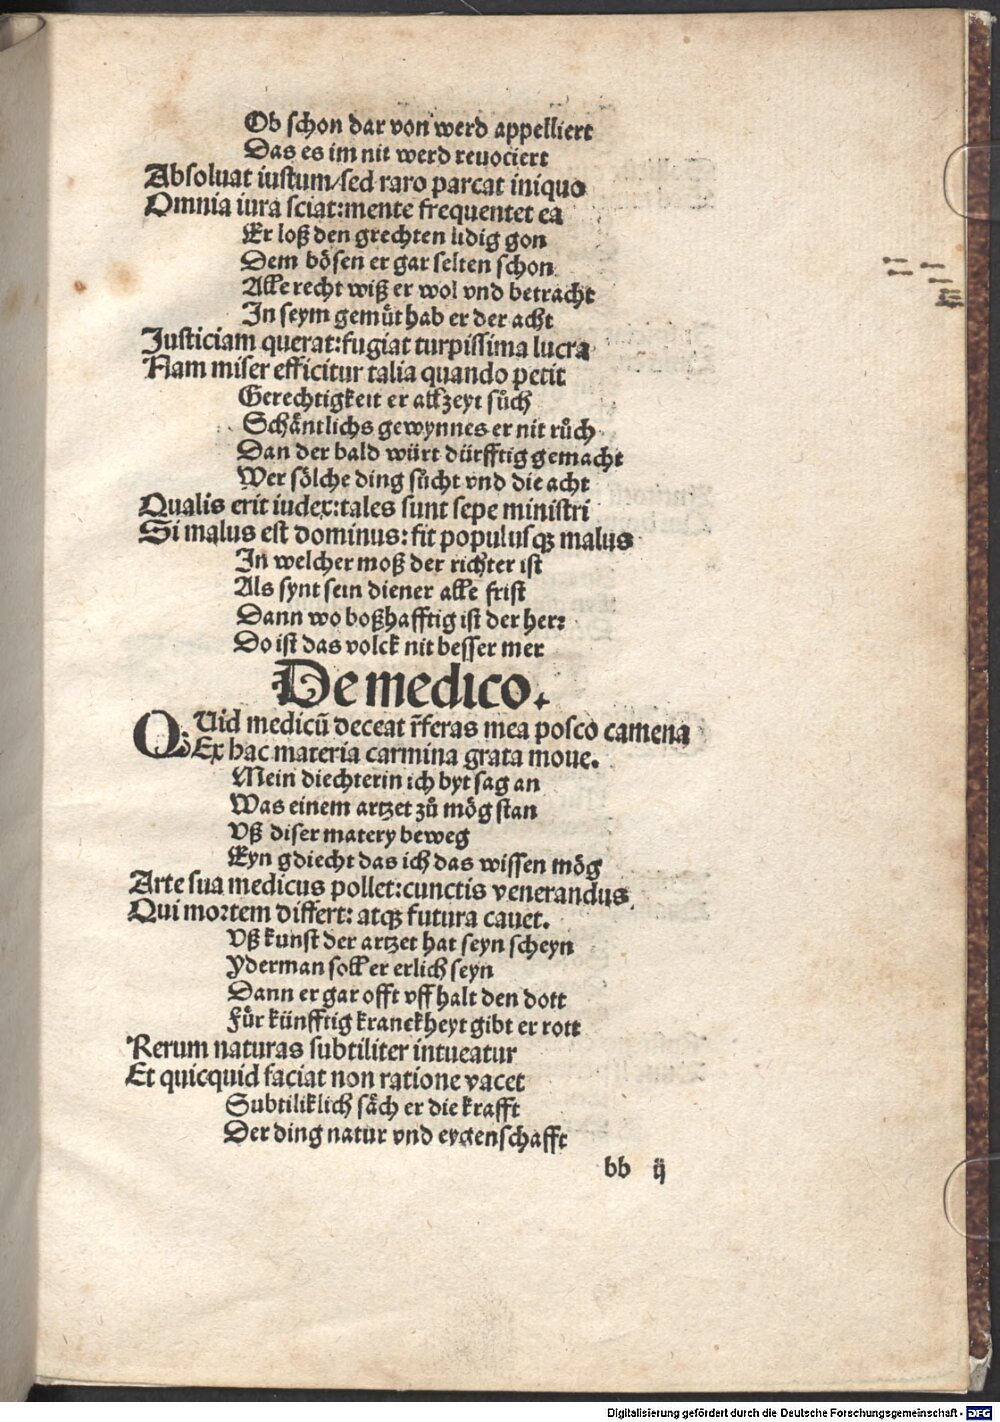 Ob schon dar von werd appelliert
Das es im nit werd reuociert
Absoluat iustum/sed raro parcat iniquo
Omnia iura sciat:mente frequentet ea
Er loß den grechten lidig gon
Dem bösen er gar selten schon
Alle recht wiß er wol vnd betracht
In seym gemüt hab er der acht
Justiciam querat:fugiat turpissima lucra
Nam miser efficitur talia quando petit
Gerechtigkeit er allzeyt sůch
Schäntlichs gewynnes er nit růch
Dan der bald würt dürfftig gemacht
Wer sölche ding sůcht vnd die acht
Qualis erit iudex:tales sunt sepe ministri
Si malus est dominus: fit populusqꝫ malus
In welcher moß der richter ist
Als synt sein diener alle frist
Dann wo boßhafftig ist der herꝛ
Do ist das volck nit besser mer
De medico.
QVid medicū deceat r̄feras mea posco camena
Ex hac materia carmina grata moue.
Mein diechterin ich byt sag an
Was einem artzet zů mög stan
Vß diser matery beweg
Eyn gdiecht das ich das wissen mög
Arte sua medicus pollet:cunctis venerandus
Qui moꝛtem differt: atqꝫ futura cauet.
Vß kunst der artzet hat seyn scheyn
Yderman soll er erlich seyn
Dann er gar offt vff halt den dott
Für künfftig kranckheyt gibt er rott
Rerum naturas subtiliter intueatur
Et quicquid faciat non ratione vacet
Subtiliklich säch er die krafft
Der ding natur vnd eygenschafft
bb ij
Digitalisierung gefördert durch die Deutsche Forschungsgemeinschaft - DFG